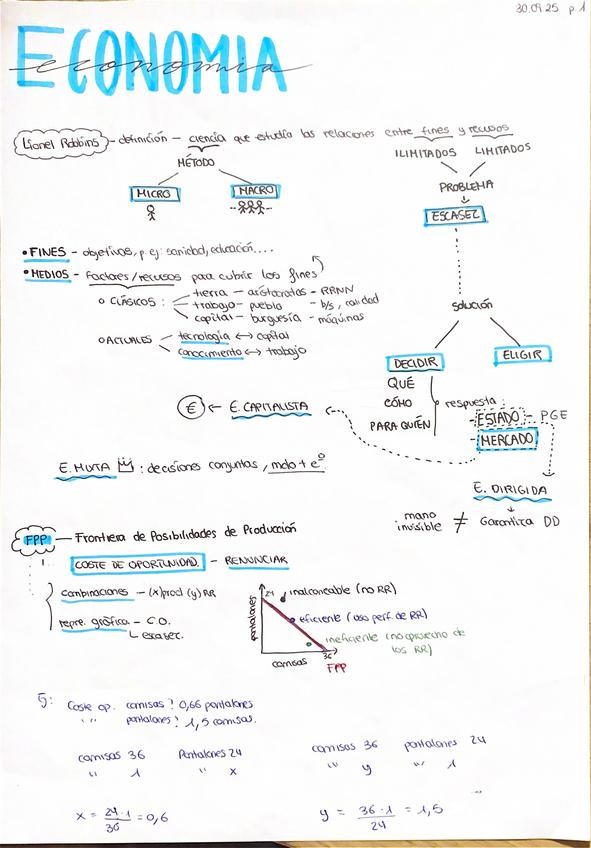 30.09.25 p.1
ECONOMIA
economia
Lionel Robbins - definición - ciencia que estudia las relaciones entre fines y recursos
ILIMITADOS LIMITADOS
MÉTODO
PROBLEMA
MICRO MACRO
ESCASEZ
• FINES - objetivos, p.ej: sanidad, educación....
• MEDIOS - Factores/recursos para cubrir los fines
o CLÁSICOS: - tierra - aristócratas - RRNN
- trabajo - pueblo - b/s, calidad
- capital - burguesía - máquinas
solución
o ACTUALES - tecnología ↔ capital
- conocimiento ↔ trabajo
DECIDIR ELIGIR
QUÉ
CÓMO
PARA QUIÉN
respuesta:
- ESTADO - PGE
- MERCADO
€ ← E. CAPITALISTA
E. MIXTA : decisiones conjuntas, mdo + eº
E. DIRIGIDA
mano invisible ≠ Garantiza DD
FPP - Frontiera de Posibilidades de Producción
COSTE DE OPORTUNIDAD - RENUNCIAR
combinaciones - (x)prod (y) RR
repre. gráfica - C.O.
escasez.
pantalones
24
inalcanzable (no RR)
eficiente (uso perf. de RR)
ineficiente (no aprovecho de
los RR)
36
camisas
FPP
5: Coste op. camisas? 0,66 pantalones
" " pantalones? 1,5 camisas.
camisas 36 Pantalones 24
" 1 " x
camisas 36 pantalones 24
" y " 1
x = 24·1 / 36 = 0,6
y = 36·1 / 24 = 1,5